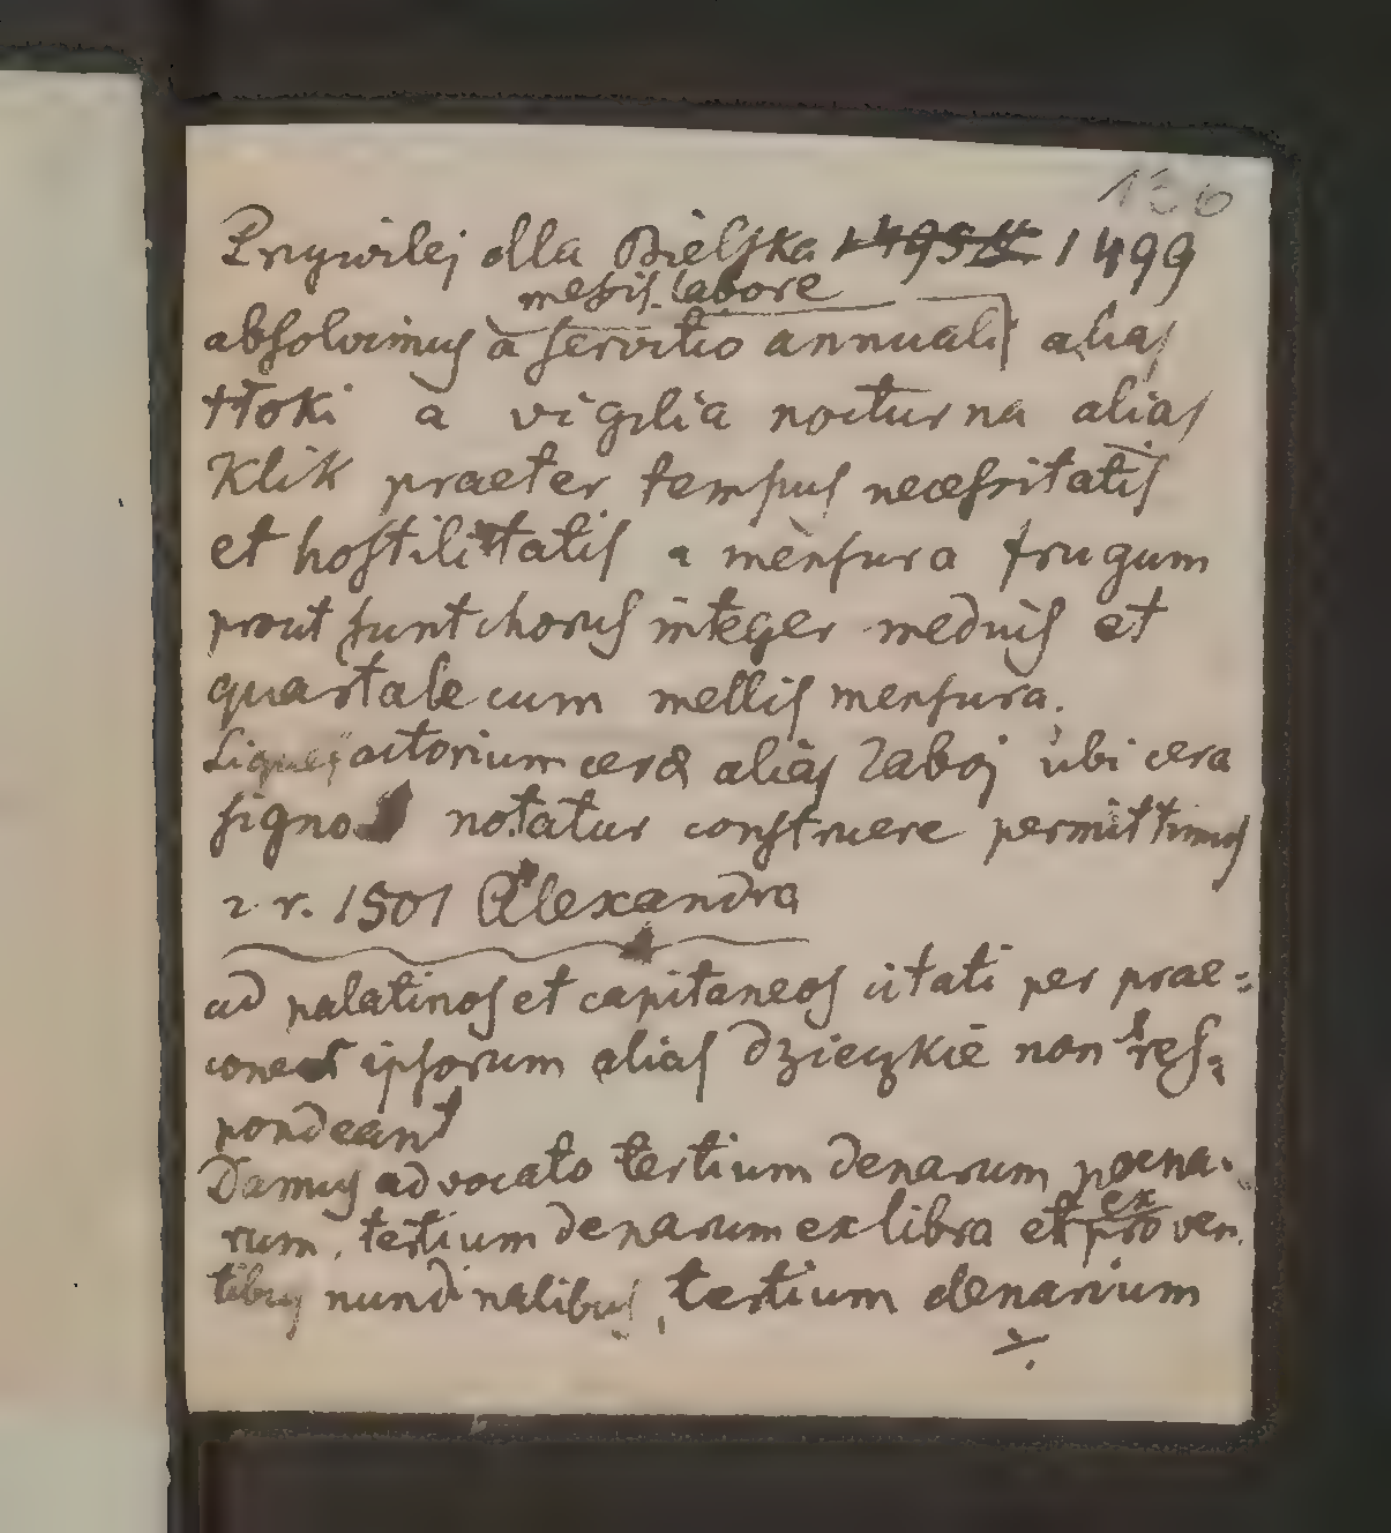 136
Przywilej dla Bielska 1495 1499
messis labore
absolvimus a servitio annuali alias
tłoki a vigilia nocturna alias
Klik praeter tempus necessitatis
et hostilitatis a mensura frugum
prout sunt chorus integer medius et
quartale cum mellis mensura.
Liquefactorium cerae alias Zaboj ubi cera
signo notatur construere permittimus
z r. 1501 Alexandra
ad palatinos et capitaneos citati per prae=
cones ipsorum alias dzieczkie non res=
pondeant
Damus advocato tertium denarium poena-
rum, tertium denarium ex libra et ex proven
tibus nundinalibus, tertium denarium